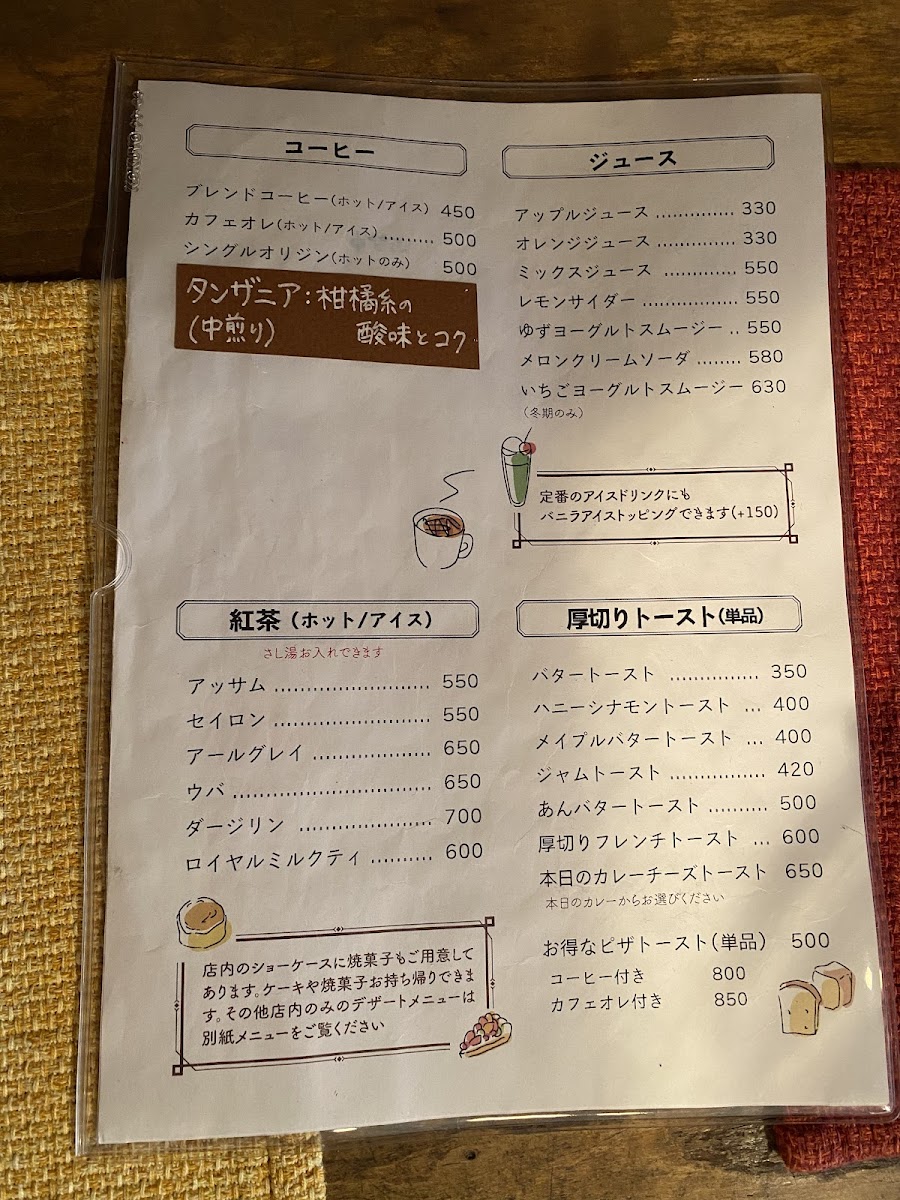 コーヒー
ブレンドコーヒー(ホット/アイス) 450
カフェオレ(ホット/アイス)......... 500
シングルオリジン(ホットのみ) 500
タンザニア:柑橘系の
(中煎り) 酸味とコク
ジュース
アップルジュース .............. 330
オレンジジュース .............. 330
ミックスジュース ............. 550
レモンサイダー ................. 550
ゆずヨーグルトスムージー .. 550
メロンクリームソーダ ........ 580
いちごヨーグルトスムージー 630
(冬期のみ)
定番のアイスドリンクにも
バニラアイストッピングできます(+150)
紅茶 (ホット/アイス)
さし湯お入れできます
アッサム .......................... 550
セイロン .......................... 550
アールグレイ .................... 650
ウバ ................................. 650
ダージリン ...................... 700
ロイヤルミルクティ .......... 600
店内のショーケースに焼菓子もご用意して
あります。ケーキや焼菓子お持ち帰りできま
す。その他店内のみのデザートメニューは
別紙メニューをご覧ください
厚切りトースト(単品)
バタートースト ............... 350
ハニーシナモントースト ... 400
メイプルバタートースト ... 400
ジャムトースト ................ 420
あんバタートースト .......... 500
厚切りフレンチトースト ... 600
本日のカレーチーズトースト 650
本日のカレーからお選びください
お得なピザトースト(単品) 500
コーヒー付き 800
カフェオレ付き 850